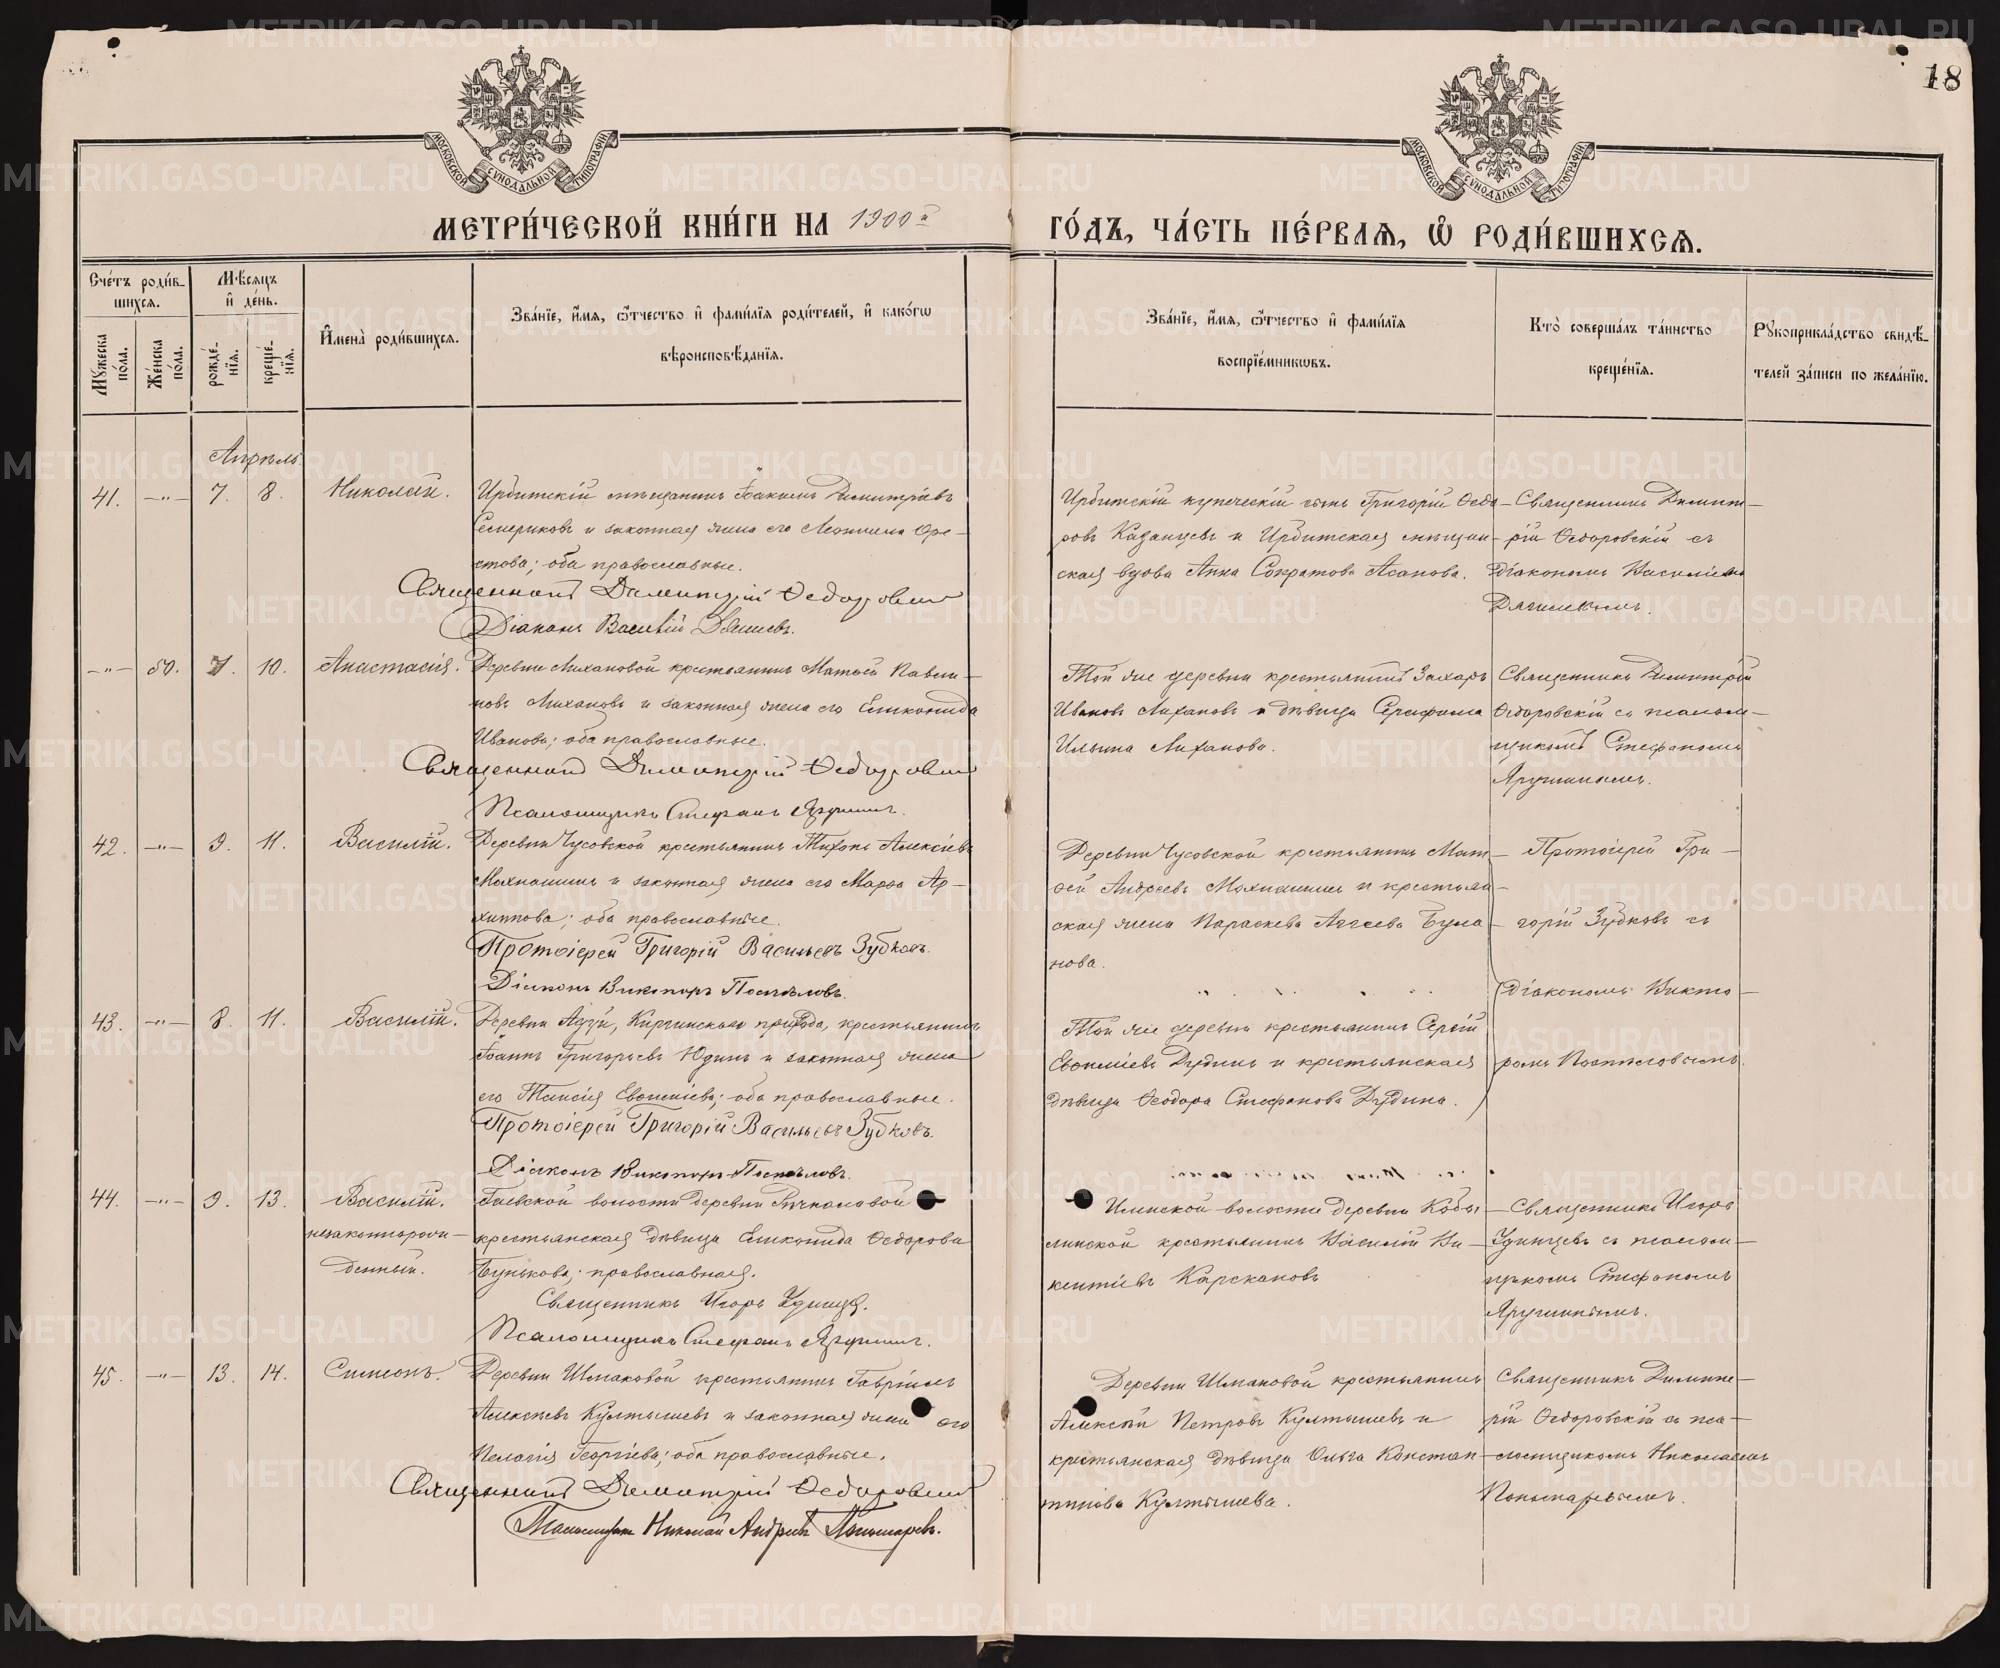 18
МОСКОВСКОЙ СѴНОДАЛЬНОЙ ТИПОГРАФІИ
МОСКОВСКОЙ СѴНОДАЛЬНОЙ ТИПОГРАФІИ
МЕТРИ́ЧЕСКОЙ КНИ́ГИ НА 1900й
ГО́ДЪ, ЧА́СТЬ ПЕ́РВАѦ, Ѡ҆ РОДИ́ВШИХСѦ.
Сче́тъ роди́в-
шихсѧ.
Мꙋжеска по́ла.
Же́нска по́ла.
Мѣ́сѧцъ
и҆ де́нь.
рожде́-нїѧ.
креще́-нїѧ.
И҆мена̀ роди́вшихсѧ.
Зва́нїе, и҆́мѧ, ѻ҆́тчество и҆ фами́лїѧ роди́телей, и҆ како́гѡ
вѣроисповѣ́данїѧ.
Зва́нїе, и҆́мѧ, ѻ҆́тчество и҆ фами́лїѧ
воспрїе́мникѡвъ.
Кто̀ соверша́лъ та́инство
креще́нїѧ.
Рꙋкоприкла́дство свидѣ́-
телей за́писи по жела́нїю.
Апрѣль
41. —"— 7. 8. Николай.
Ирбитскій мѣщанинъ Іоакимъ Димитріевъ
Семериковъ и законная жена его Леонилла Оре-
стова; оба православные.
Священникъ Димитрій Ѳедоровскій
Діаконъ Василій
Ирбитскій купеческій сынъ Григорій Ѳедо-
ровъ Казанцевъ и Ирбитская мѣщан-
ская вдова Анна Сократова Асанова.
Священникъ Димит-
рій Ѳедоровскій съ
діакономъ Василіемъ
—"— 50. 7. 10. Анастасія.
Деревни Лихановой крестьянинъ Матѳей Павли-
новъ Лихановъ и законная жена его Еликонида
Иванова; оба православные.
Священникъ Димитрій Ѳедоровскій
Псаломщикъ Стефанъ Ярушинъ.
Той же деревни крестьянинъ Захаръ
Ивановъ Лихановъ и дѣвица Серафима
Ильина Лиханова.
Священникъ Димитрій
Ѳедоровскій съ псалом-
щикомъ Стефаномъ
Ярушинымъ.
42. —"— 9. 11. Василій.
Деревни Чусовской крестьянинъ Тихонъ Алексѣевъ
Махнашинъ и законная жена его Марѳа Ар-
хиппова; оба православные.
Протоіерей Григорій Васильевъ Зубковъ.
Діаконъ Викторъ Поспѣловъ.
Деревни Чусовской крестьянинъ Мат-
ѳей Андреевъ Махнашинъ и крестьян-
ская жена Параскева Аггеева Була-
нова.
Протоіерей Гри-
горій Зубковъ съ
діакономъ Викто-
ромъ Поспѣловымъ.
43. —"— 8. 11. Василій.
Деревни Адуй, Киргинскаго прихода, крестьянинъ
Іоаннъ Григорьевъ Юдинъ и законная жена
его Таисія Евѳиміева; оба православные.
Протоіерей Григорій Васильевъ Зубковъ.
Діаконъ Викторъ Поспѣловъ.
Той же деревни крестьянинъ Сергій
Евѳиміевъ Дудинъ и крестьянская
дѣвица Ѳеодора Стефанова Дудина.
44. —"— 9. 13. Василій.
незаконнорож-
денный.
Гаевской волости деревни Речкаловой
крестьянская дѣвица Еликонида Ѳедорова
Бунькова; православная.
Священникъ Игорь Удинцевъ.
Псаломщикъ Стефанъ Ярушинъ.
Илинской волости деревни Кобы-
линской крестьянинъ Василій Ви-
кентіевъ Карскановъ
Священникъ Игорь
Удинцевъ съ псалом-
щикомъ Стефаномъ
Ярушинымъ.
45. —"— 13. 14. Симеонъ.
Деревни Шмаковой крестьянинъ Гавріилъ
Алексѣевъ Култышевъ и законная жена его
Пелагія Георгіева; оба православные.
Священникъ Димитрій Ѳедоровскій
Псаломщикъ Николай Андреевъ Пономаревъ.
Деревни Шмаковой крестьянинъ
Алексѣй Петровъ Култышевъ и
крестьянская дѣвица Ольга Констан-
тинова Култышева.
Священникъ Димит-
рій Ѳедоровскій съ пса-
ломщикомъ Николаемъ
Пономаревымъ.
METRIKI.GASO-URAL.RU